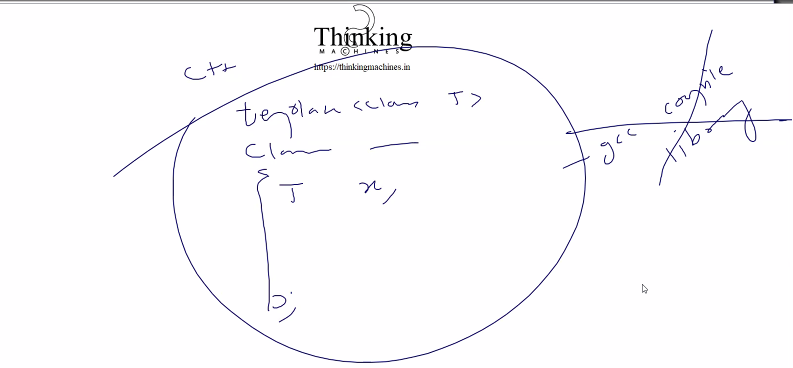 Thinking
MACHINES
https://thinkingmachines.in
C++
template <class T>
class
{
T x;
};
gcc
compile
library